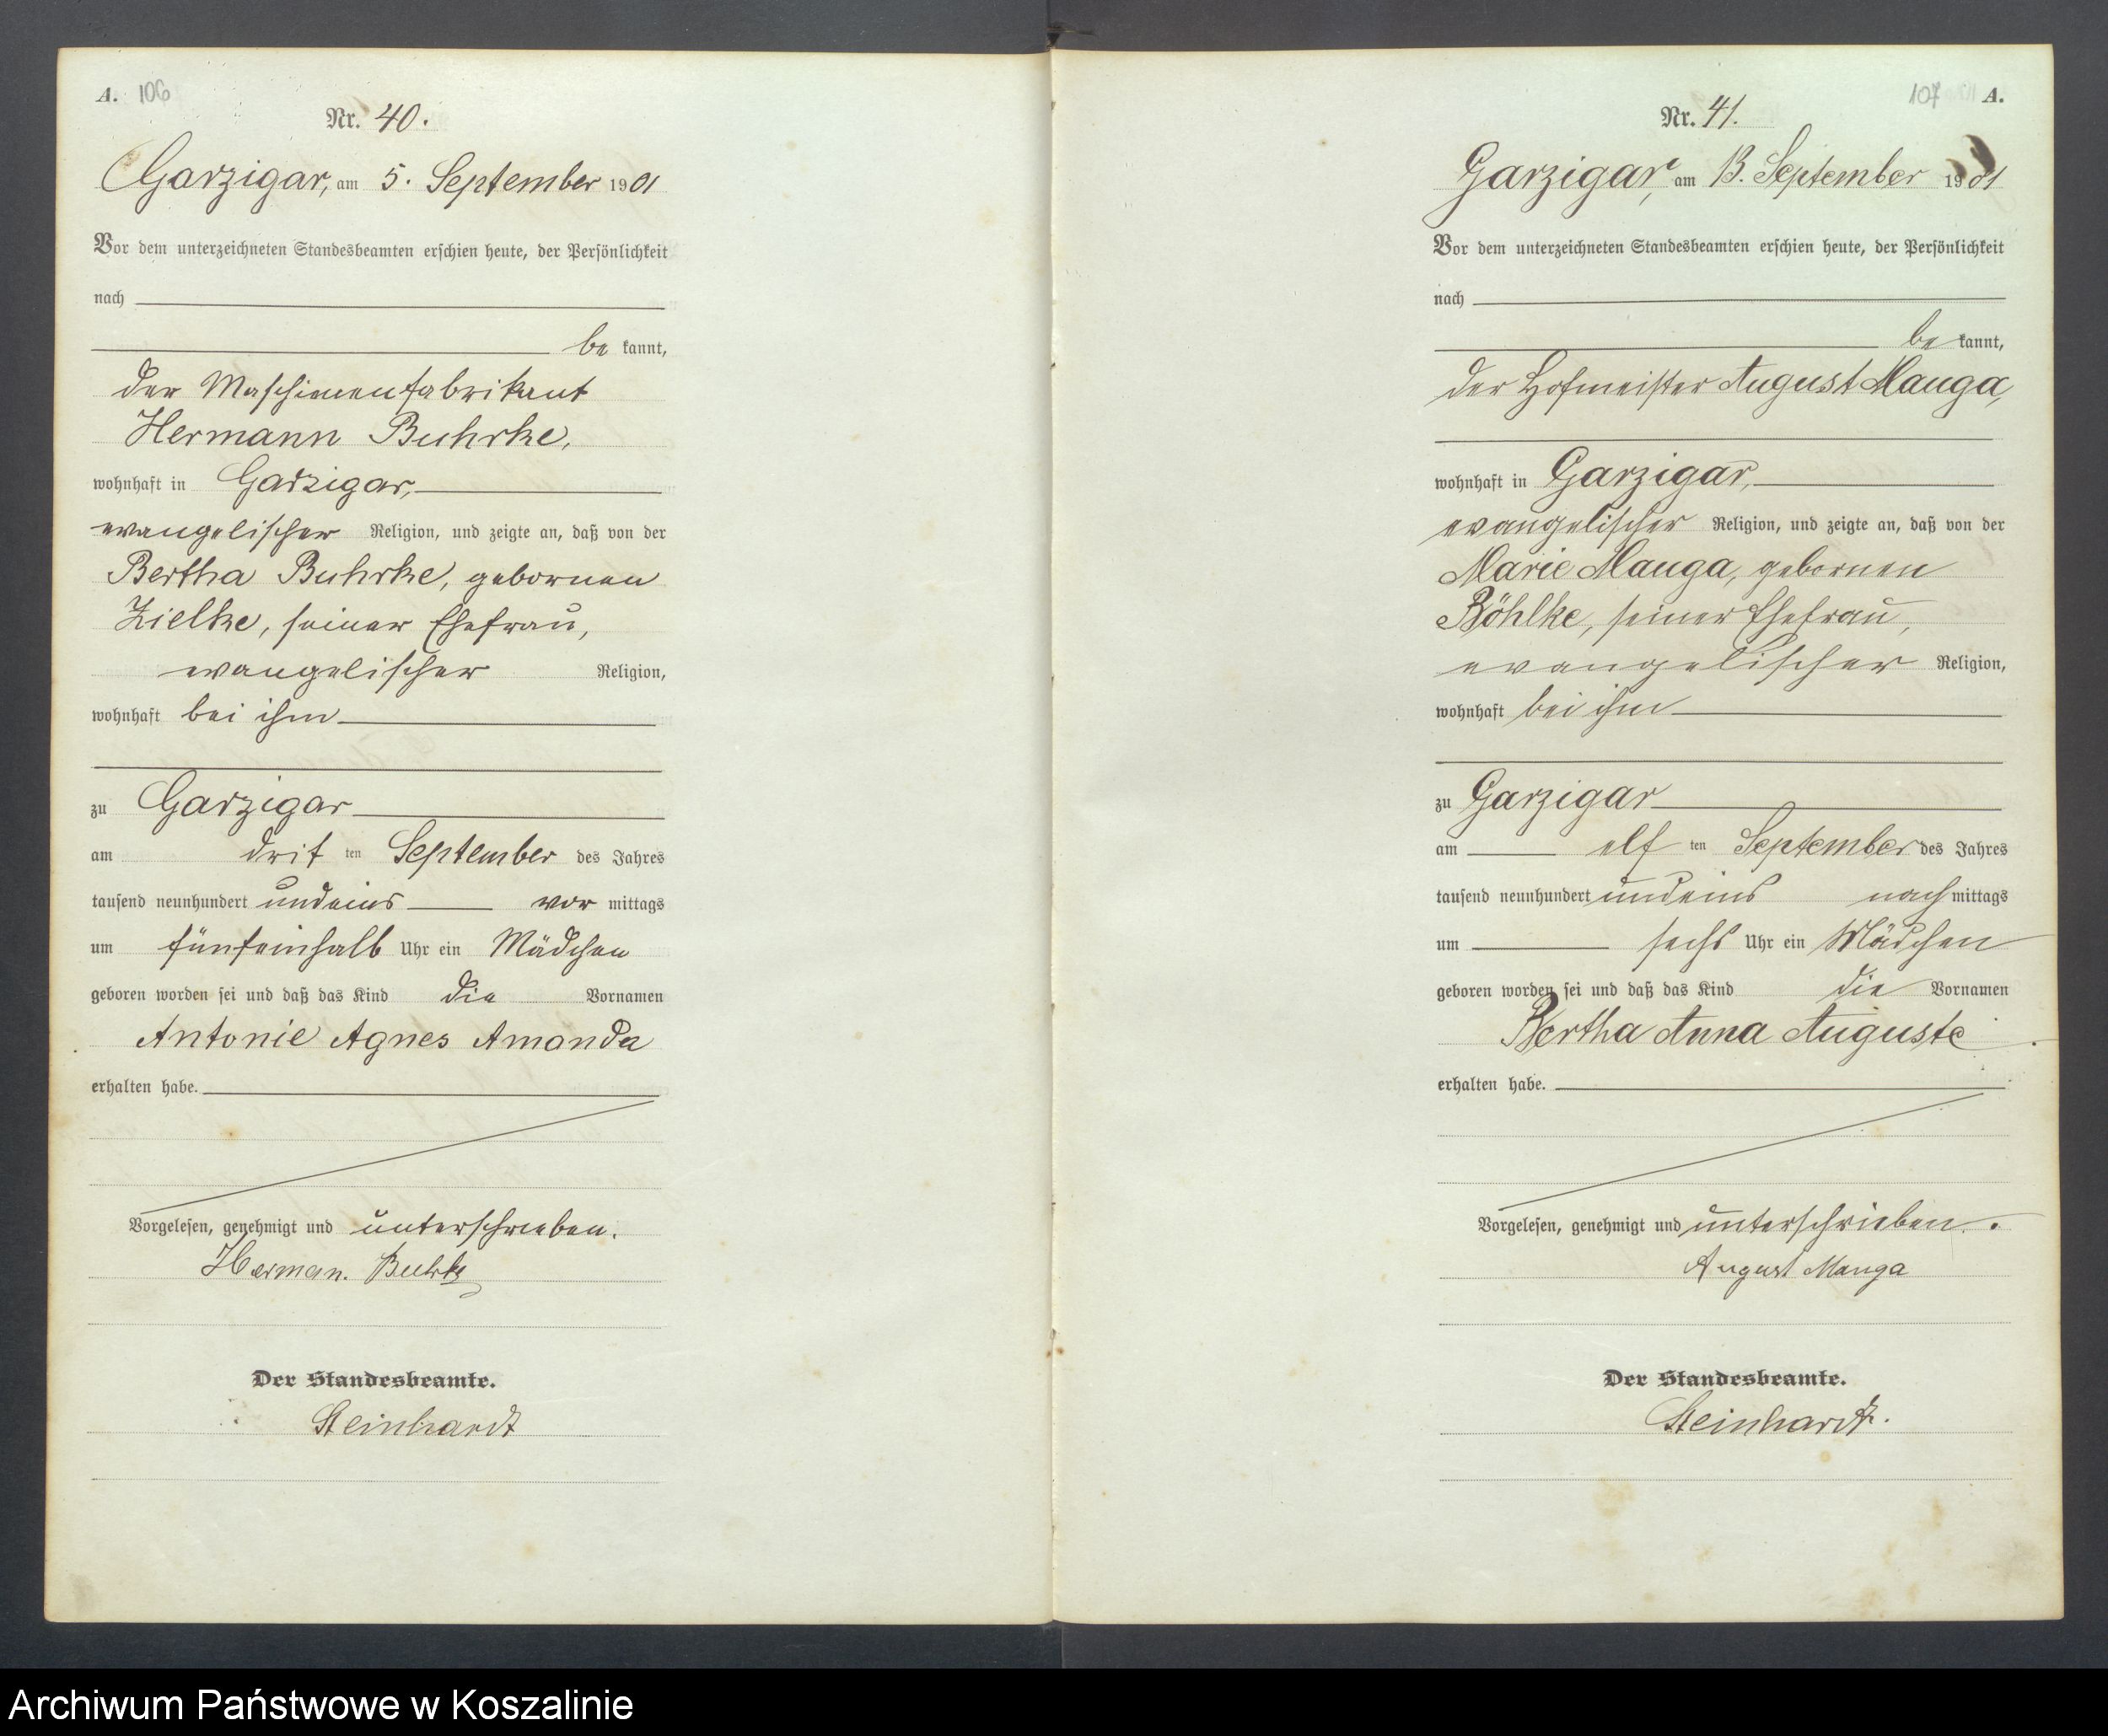 A. 106
Nr. 40.
Garzigar, am 5. September 1901
Vor dem unterzeichneten Standesbeamten erschien heute, der Persönlichkeit
nach
be kannt,
der Maschinenfabrikant
Hermann Buhrke,
wohnhaft in Garzigar,
evangelischer Religion, und zeigte an, daß von der
Bertha Buhrke, gebornen
Zielke, seiner Ehefrau,
evangelischer Religion,
wohnhaft bei ihm
zu Garzigar
am drit ten September des Jahres
tausend neunhundert undeins vor mittags
um fünfeinhalb Uhr ein Mädchen
geboren worden sei und daß das Kind die Vornamen
Antonie Agnes Amanda
erhalten habe.
Vorgelesen, genehmigt und unterschrieben.
Herman. Buhrke
Der Standesbeamte.
Steinhardt
107 A.
Nr. 41.
Garzigar, am 13. September 1901
Vor dem unterzeichneten Standesbeamten erschien heute, der Persönlichkeit
nach
be kannt,
der Hofmeister August Manga,
wohnhaft in Garzigar,
evangelischer Religion, und zeigte an, daß von der
Marie Manga, gebornen
Böhlke, seiner Ehefrau,
evangelischer Religion,
wohnhaft bei ihm
zu Garzigar
am elf ten September des Jahres
tausend neunhundert undeins nach mittags
um sechs Uhr ein Mädchen
geboren worden sei und daß das Kind die Vornamen
Bertha Anna Auguste
erhalten habe.
Vorgelesen, genehmigt und unterschrieben.
August Manga
Der Standesbeamte.
Steinhardt.
Archiwum Państwowe w Koszalinie